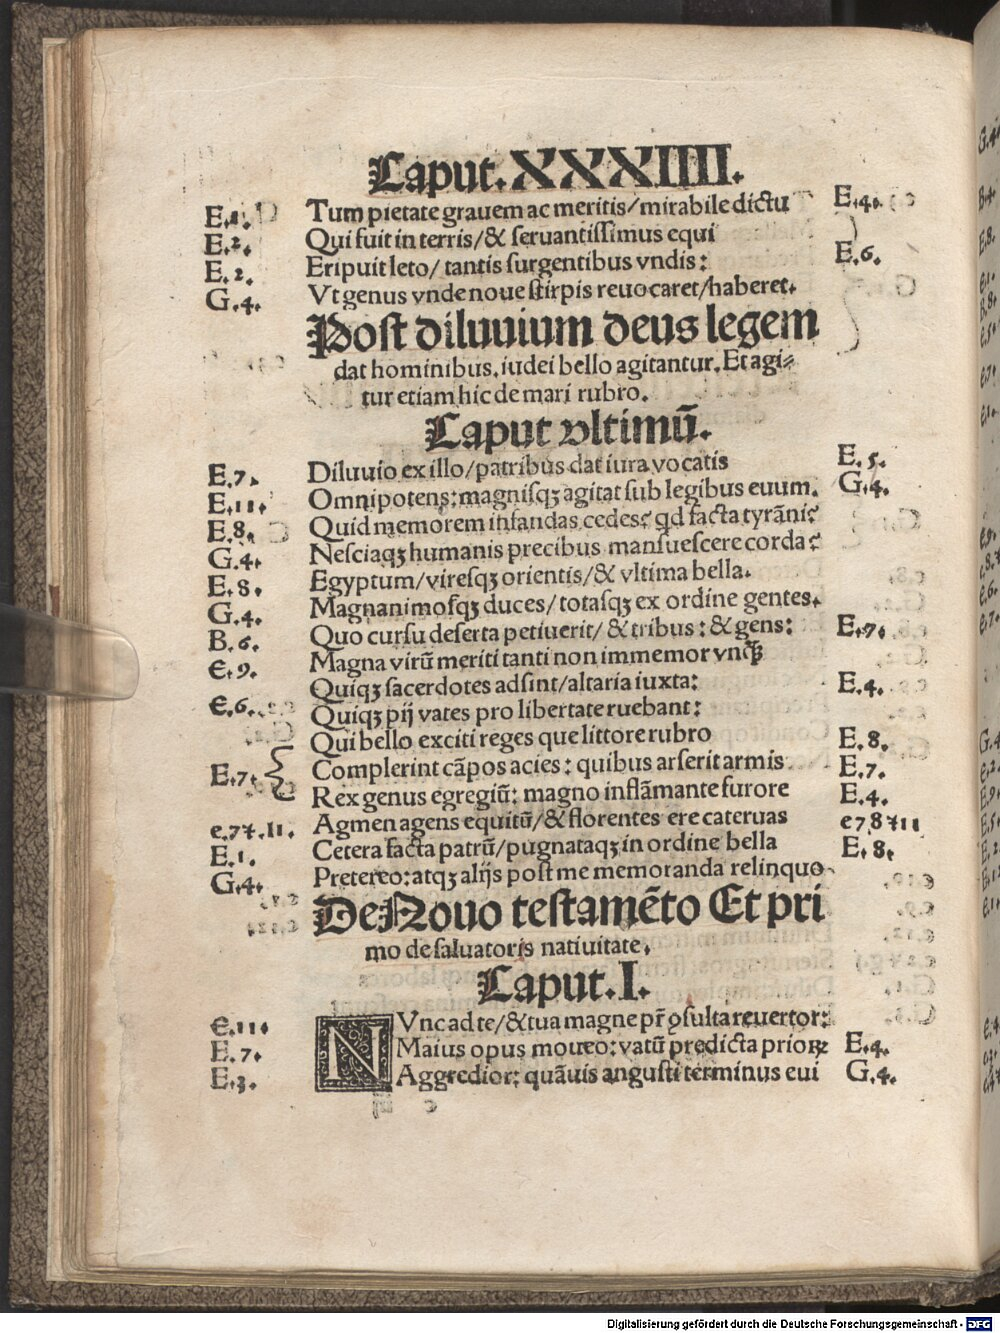 Caput. XXXIIII.
E.1. Tum pietate grauem ac meritis/mirabile dictu E.4.
E.2. Qui fuit in terris/& seruantissimus equi
E.2. Eripuit leto/tantis surgentibus vndis: E.6.
G.4. Vt genus vnde noue stirpis reuocaret/haberet.
Post diluuium deus legem
dat hominibus. iudei bello agitantur. Et agi⸗
tur etiam hic de mari rubro.
Caput vltimū.
E.7. Diluuio ex illo/patribus dat iura vocatis E.5.
E.11. Omnipotens:magnisqꝫ agitat sub legibus euum. G.4.
E.8. Quid memorem infandas cedes? qd facta tyrāni?
G.4. Nesciaqꝫ humanis precibus mansuescere corda?
E.8. Egyptum/viresqꝫ orientis/& vltima bella.
G.4. Magnanimosqꝫ duces/totasqꝫ ex ordine gentes.
B.6. Quo cursu deserta petiuerit/& tribus:& gens: E.7.
e.9. Magna virū meriti tanti non immemor vnꝙ̃
e.6. Quiqꝫ sacerdotes adsint/altaria iuxta: E.4.
Quiqꝫ pij vates pro libertate ruebant:
Qui bello exciti reges que littore rubro E.8.
E.7. Complerint cāpos acies: quibus arserit armis E.7.
Rex genus egregiū: magno inflāmante furore E.4.
e.77.11. Agmen agens equitū/& florentes ere cateruas e7 8 711
E.1. Cetera facta patrū/pugnataqꝫ in ordine bella E.8.
G.4. Pretereo:atqꝫ alijs post me memoranda relinquo
De Nouo testamēto Et pri
mo de saluatoris natiuitate.
Caput. I.
e.11. NVnc ad te/& tua magne pr̄ ꝯsulta reuertor:
E.7. Maius opus moueo:vatū predicta prioꝝ E.4.
E.3. Aggredior: quāuis angusti terminus eui G.4.
Digitalisierung gefördert durch die Deutsche Forschungsgemeinschaft - DFG